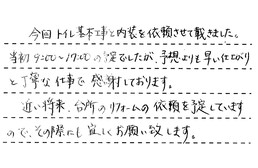 今回トイレ基本工事と内装を依頼させて戴きました。
当初9:00～17:00の予定でしたが、予想よりも早い仕上がり
と丁寧な仕事で感謝しております。
近い将来、台所のリフォームの依頼を予定しています
ので、その際にも宜しくお願い致します。